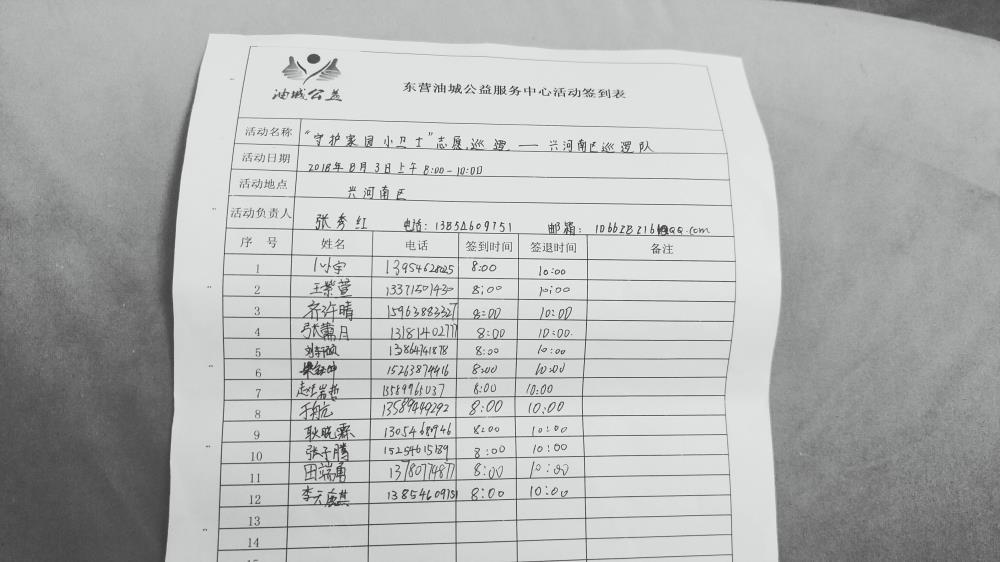 油城公益
东营油城公益服务中心活动签到表
活动名称 “守护家园小卫士”志愿巡逻 — 兴河南区巡逻队
活动日期 2018年8月3日上午 8:00-10:00
活动地点 兴河南区
活动负责人 张秀红 电话: 13854609751 邮箱:
序号 姓名 电话 签到时间 签退时间 备注
1 13954628025 8:00 10:00
2 王紫萱 13371501430 8:00 10:00
3 齐许晴 15963883327 8:00 10:00
4 月 13181402777 8:00 10:00
5 13864741878 8:00 10:00
6 15263874416 8:00 10:00
7 赵 哲 13589965037 8:00 10:00
8 于航 13589449292 8:00 10:00
9 耿晓霖 13054680946 8:00 10:00
10 张子腾 15254615189 8:00 10:00
11 田端勇 13780774877 8:00 10:00
12 李云 13854609751 8:00 10:00
13
14